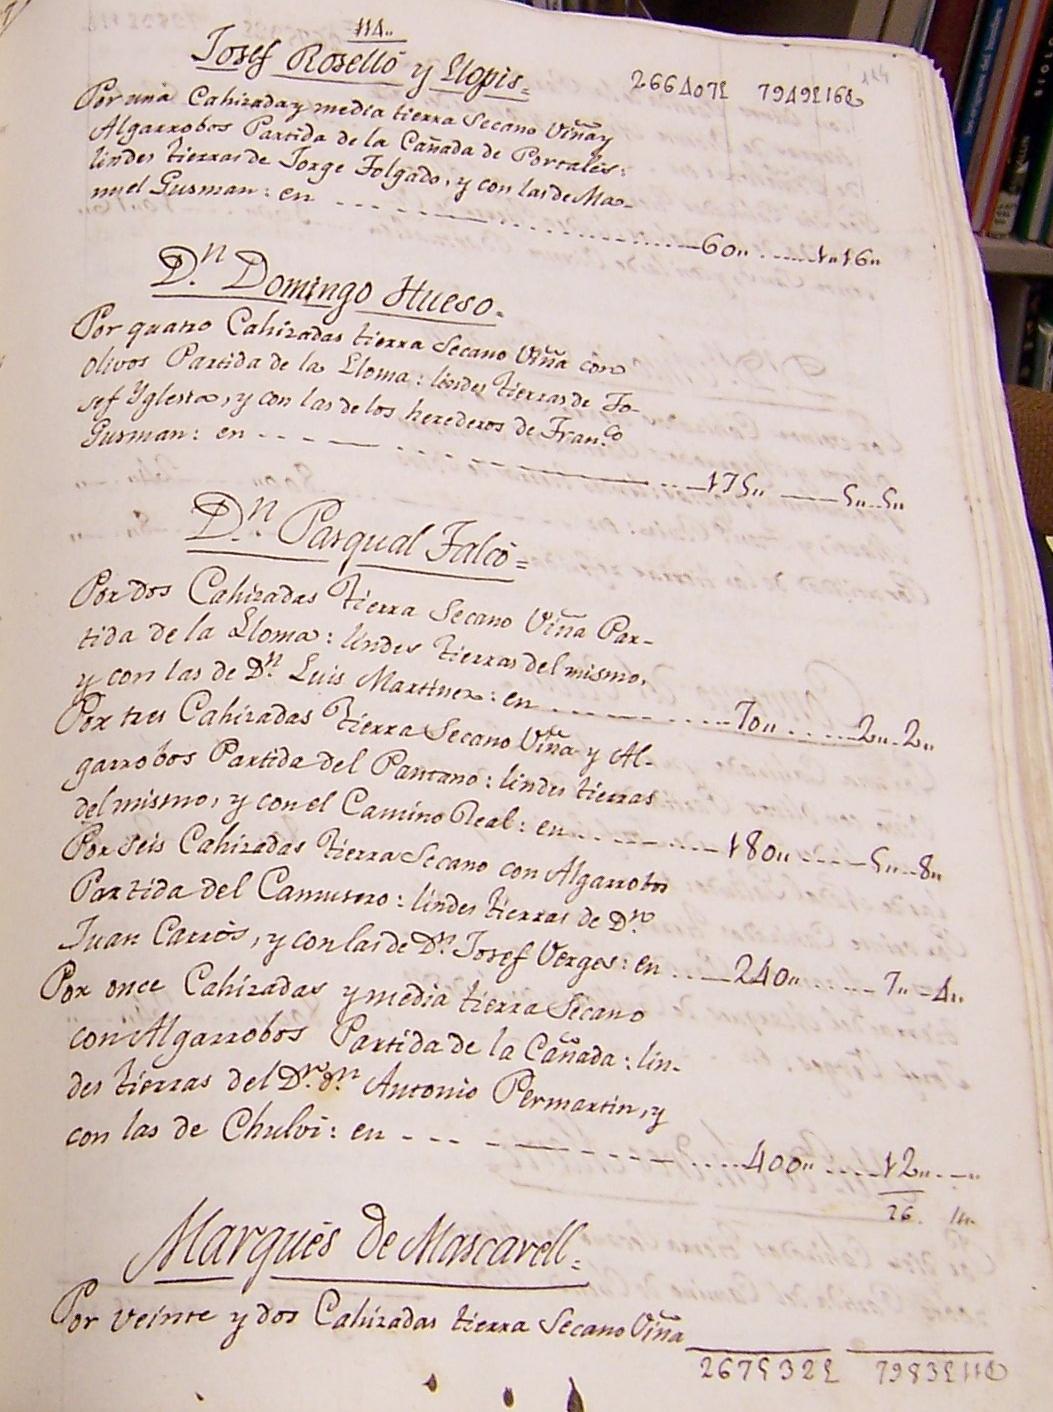 114„
Josef Roselló y Llopis= 266407£ 7949£16
114
Por una Cahizada y media tierra Secano Viña y
Algarrobos Partida de la Cañada de Portales:
lindes tierras de Jorge Folgado, y con las de Ma-
nuel Gusman: en 60„ 1„16„
Dn. Domingo Hueso.
Por quatro Cahizadas tierra Secano Viña con
Olivos Partida de la Lloma: lindes tierras de Jo-
sef Yglesia, y con las de los herederos de Fran.co
Gusman: en 175„ 5„5„
Dn. Pasqual Falcó=
Por dos Cahizadas tierra Secano Viña Par-
tida de la Lloma: lindes tierras del mismo,
y con las de Dn. Luis Martinez: en 70„ 2„2„
Por tres Cahizadas tierra Secano Viña y Al-
garrobos Partida del Pantano: lindes tierras
del mismo, y con el Camino Real: en 180„ 5„8„
Por seis Cahizadas tierra Secano con Algarrobos
Partida del Camusero: lindes tierras de Dn.
Juan Carrós, y con las de Dn. Josef Verges: en 240„ 7„4„
Por once Cahizadas y media tierra Secano
con Algarrobos Partida de la Cañada: lin-
des tierras del Dr. Dn. Antonio Permartin, y
con las de Chulvi: en 400„ 12„
26.
Marqués de Mascarell=
Por veinte y dos Cahizadas tierra Secano Viña
267532£ 7983£11